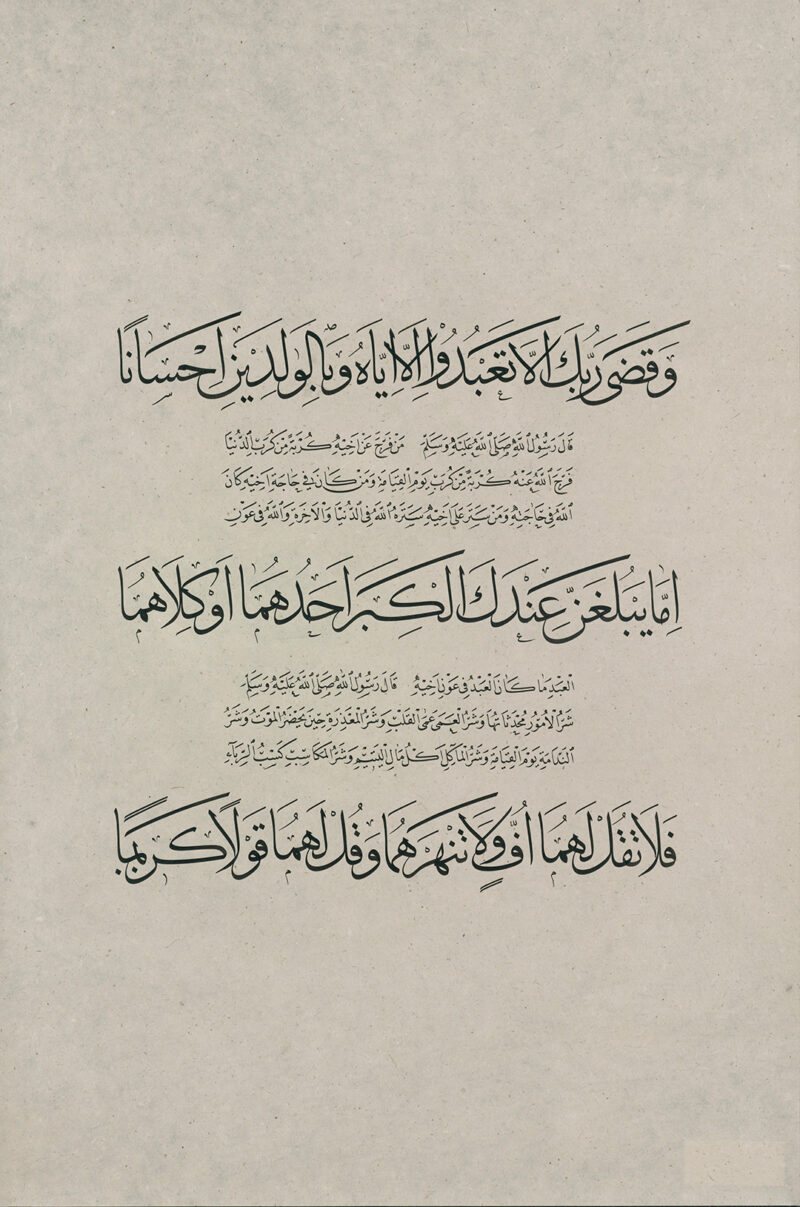 وَقَضَى رَبُّكَ اَلَّا تَعْبُدُوْا اِلَّا اِيَّاهُ وَبِالْوَالِدَيْنِ اِحْسَانًا
قَالَ رَسُوْلُ اللّٰهِ صَلَّى اللّٰهُ عَلَيْهِ وَسَلَّمَ مَنْ فَرَّجَ عَنْ اَخِيْهِ كُرْبَةً مِنْ كُرَبِ الدُّنْيَا
فَرَّجَ اللّٰهُ عَنْهُ كُرْبَةً مِنْ كُرَبِ يَوْمِ الْقِيَامَةِ وَمَنْ كَانَ فِي حَاجَةِ اَخِيْهِ كَانَ
اللّٰهُ فِي حَاجَتِهِ وَمَنْ سَتَرَ عَلَى اَخِيْهِ سَتَرَهُ اللّٰهُ فِي الدُّنْيَا وَالْاٰخِرَةِ وَاللّٰهُ فِي عَوْنِ
اِمَّا يَبْلُغَنَّ عِنْدَكَ الْكِبَرَ اَحَدُهُمَا اَوْ كِلَاهُمَا
الْعَبْدِ مَا كَانَ الْعَبْدُ فِي عَوْنِ اَخِيْهِ قَالَ رَسُوْلُ اللّٰهِ صَلَّى اللّٰهُ عَلَيْهِ وَسَلَّمَ
شَرُّ الْاُمُوْرِ مُحْدَثَاتُهَا وَشَرُّ الْعَمَى عَمَى الْقَلْبِ وَشَرُّ الْمَعْذِرَةِ حِيْنَ يَحْضُرُ الْمَوْتُ وَشَرُّ
النَّدَامَةِ يَوْمَ الْقِيَامَةِ وَشَرُّ الْمَأْكَلِ اَكْلُ مَالِ الْيَتِيْمِ وَشَرُّ الْمَكَاسِبِ كَسْبُ الرِّبَاءِ
فَلَا تَقُلْ لَهُمَا اُفٍّ وَلَا تَنْهَرْهُمَا وَقُلْ لَهُمَا قَوْلًا كَرِيْمًا